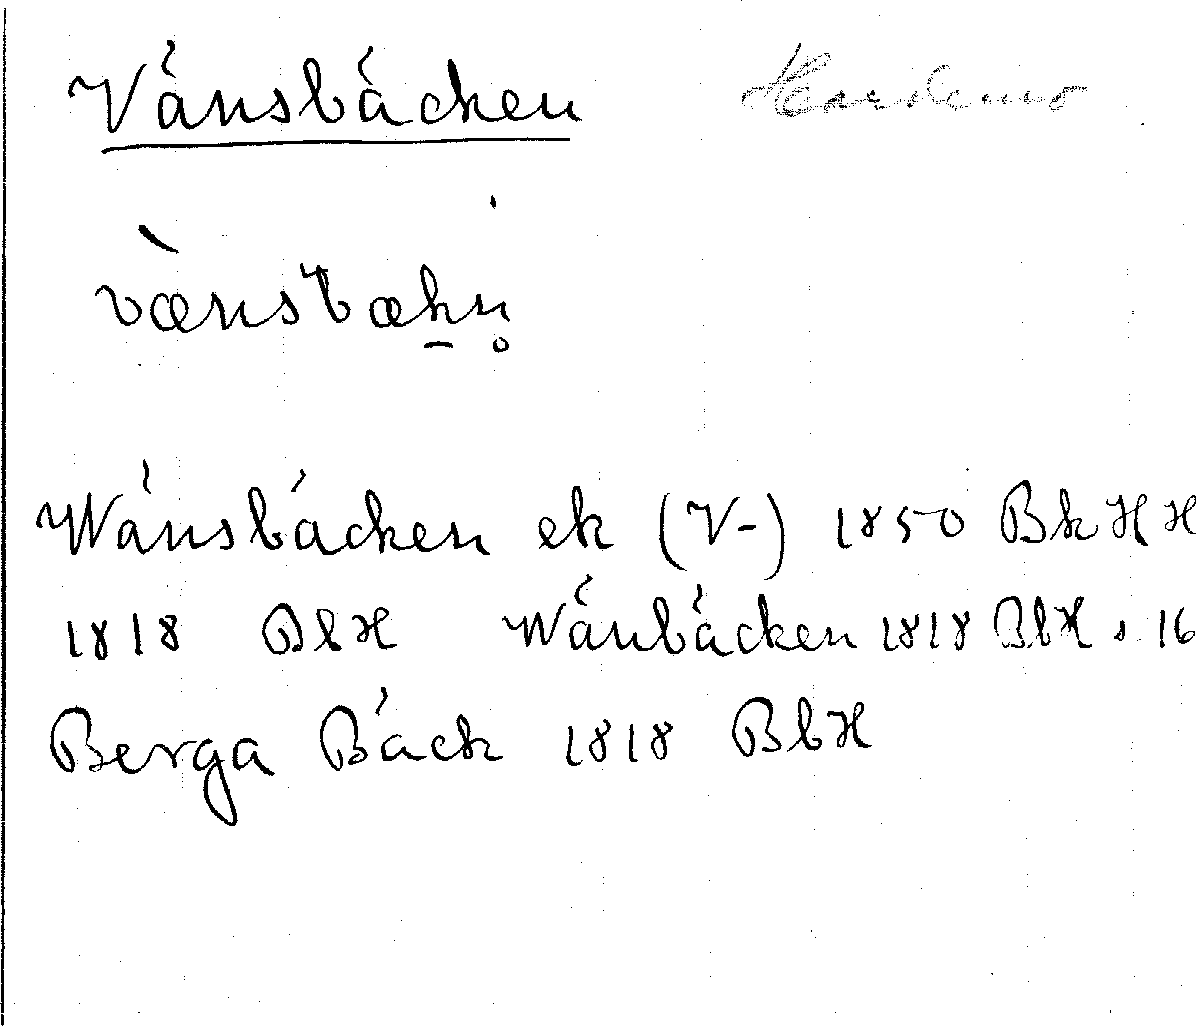 Vänsbäcken Hardemo
vænsbækn̥
Wänsbäcken ek (V-) 1850 BkHH
1818 BbH Wänbäcken 1818 BbH s 16
Berga Bäck 1818 BbH